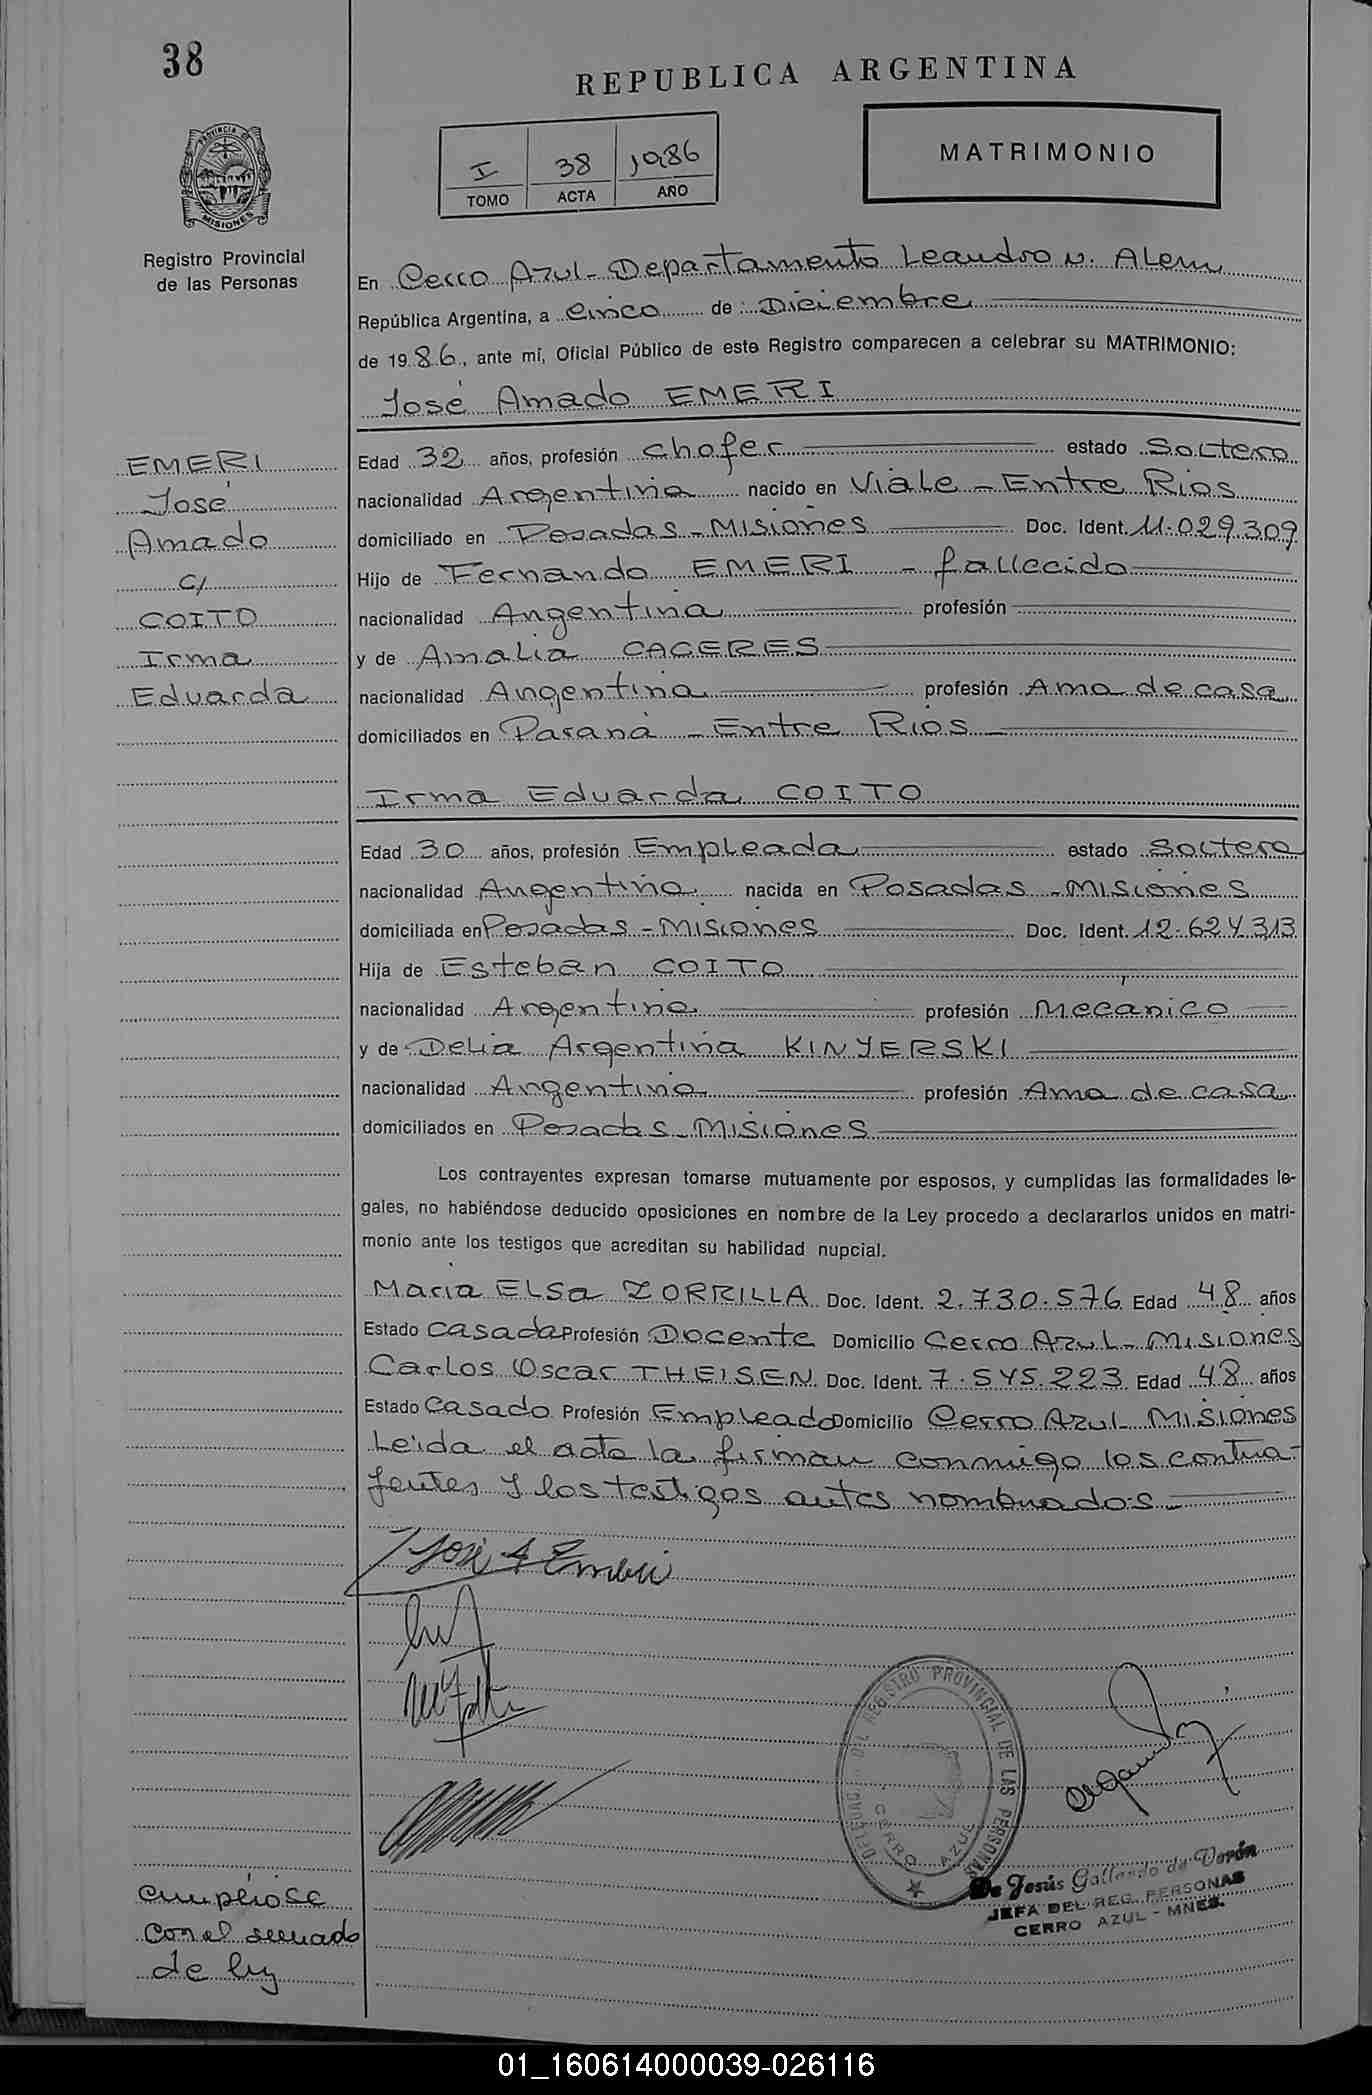 38
REPUBLICA ARGENTINA
I 38 1986
TOMO ACTA AÑO
MATRIMONIO
PROVINCIA DE
MISIONES
Registro Provincial
de las Personas
En Cerro Azul - Departamento Leandro N. Alem
República Argentina, a Cinco de Diciembre
de 1986, ante mí, Oficial Público de este Registro comparecen a celebrar su MATRIMONIO:
José Amado EMERI
EMERI
José
Amado
c/
COITO
Irma
Eduarda
Edad 32 años, profesión Chofer estado Soltero
nacionalidad Argentina nacido en Viale - Entre Rios
domiciliado en Posadas - Misiones Doc. Ident. 11.029.309
Hijo de Fernando EMERI - fallecido
nacionalidad Argentina profesión
y de Amalia CACERES
nacionalidad Argentina profesión Ama de casa
domiciliados en Paraná - Entre Rios
Irma Eduarda COITO
Edad 30 años, profesión Empleada estado Soltera
nacionalidad Argentina nacida en Posadas - Misiones
domiciliada en Posadas - Misiones Doc. Ident. 12.624.313
Hija de Esteban COITO
nacionalidad Argentina profesión Mecanico
y de Delia Argentina KINYERSKI
nacionalidad Argentina profesión Ama de casa
domiciliados en Posadas - Misiones
Los contrayentes expresan tomarse mutuamente por esposos, y cumplidas las formalidades le-
gales, no habiéndose deducido oposiciones en nombre de la Ley procedo a declararlos unidos en matri-
monio ante los testigos que acreditan su habilidad nupcial.
Maria Elsa ZORRILLA Doc. Ident. 2.730.576 Edad 48 años
Estado Casada Profesión Docente Domicilio Cerro Azul - Misiones
Carlos Oscar THEISEN Doc. Ident. 7.545.223 Edad 48 años
Estado Casado Profesión Empleado Domicilio Cerro Azul Misiones
Leida el acta la firman conmigo los contra-
yentes y los testigos antes nombrados -
José A Emeri
DELEGACION DEL REGISTRO PROVINCIAL DE LAS PERSONAS
CERRO AZUL
De Jesús Gallardo de Verón
JEFA DEL REG. PERSONAS
CERRO AZUL - MNES.
Cumpliose
con el sellado
de ley
01_160614000039-026116